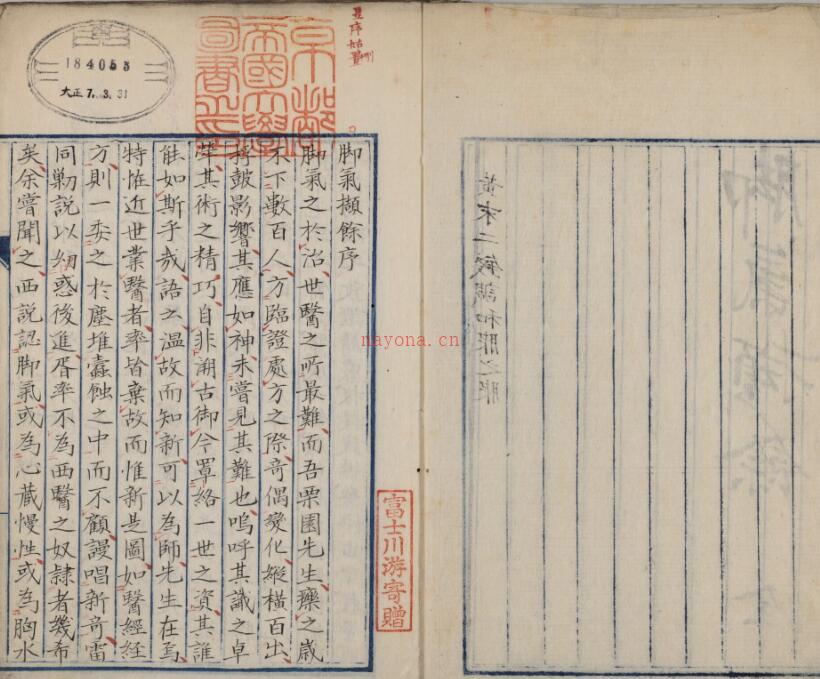 黄末二
富士川游寄贈
京都
帝國大學
圖書之印
184055
大正7.3.31
脚氣擷餘序
脚氣之於治世醫之所最難而吾栗園先生療之歳
不下數百人方臨證處方之際奇偶變化縱橫百出
桴鼓影響其應如神未嘗見其難也嗚呼其識之卓
犖其術之精巧自非溯古御今罩絡一世之資其誰
能如斯乎哉語云温故而知新可以為師先生在焉
特恠近世業醫者率皆棄故而惟新是圖如醫經經
方則一委之於塵堆蠹蝕之中而不顧謾唱新奇雷
同勦説以惑後進胥率不為西醫之奴隷者幾希
矣余嘗聞之西説認脚氣或為心蔵慢性或為胸水
nayona.cn